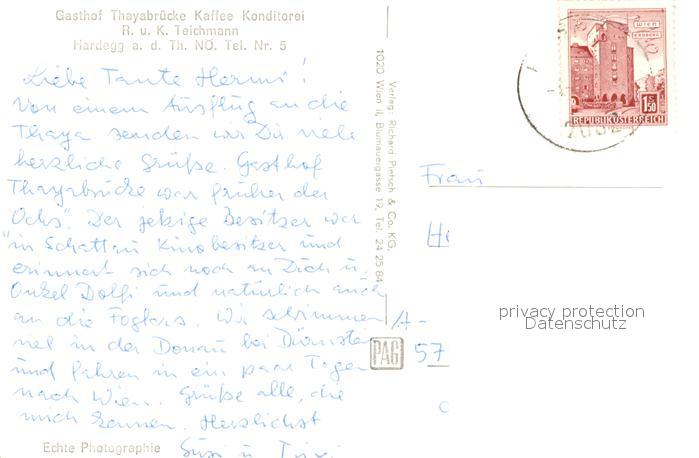 Gasthof Thayabrücke Kaffee Konditorei
R. u. K. Teichmann
Hardegg a. d. Th. NÖ. Tel. Nr. 5
Liebe Tante Hermi!
Von einem Ausflug an die
Thaya senden wir Dir viele
herzliche Grüße. Gasthof
Thayabrücke war früher der
"Ochs". Der jetzige Besitzer war
in Schattau Kinobesitzer und
erinnert sich noch an Dich u.
Onkel Dolfi und natürlich auch
an die Foglers. Wir schwimmen
viel in der Donau bei Dürnstein
und fahren in ein paar Tagen
nach Wien. Grüße alle, die
mich kennen. Herzlichst
Susi u.
Echte Photographie
Verlag: Richard Pietsch & Co. KG.
1020 Wien II, Blumauergasse 19, Tel. 24 25 84
PAG
WIEN
ERDBERG
1.50
REPUBLIK ÖSTERREICH
2082
Frau
A-
57
privacy protection
Datenschutz